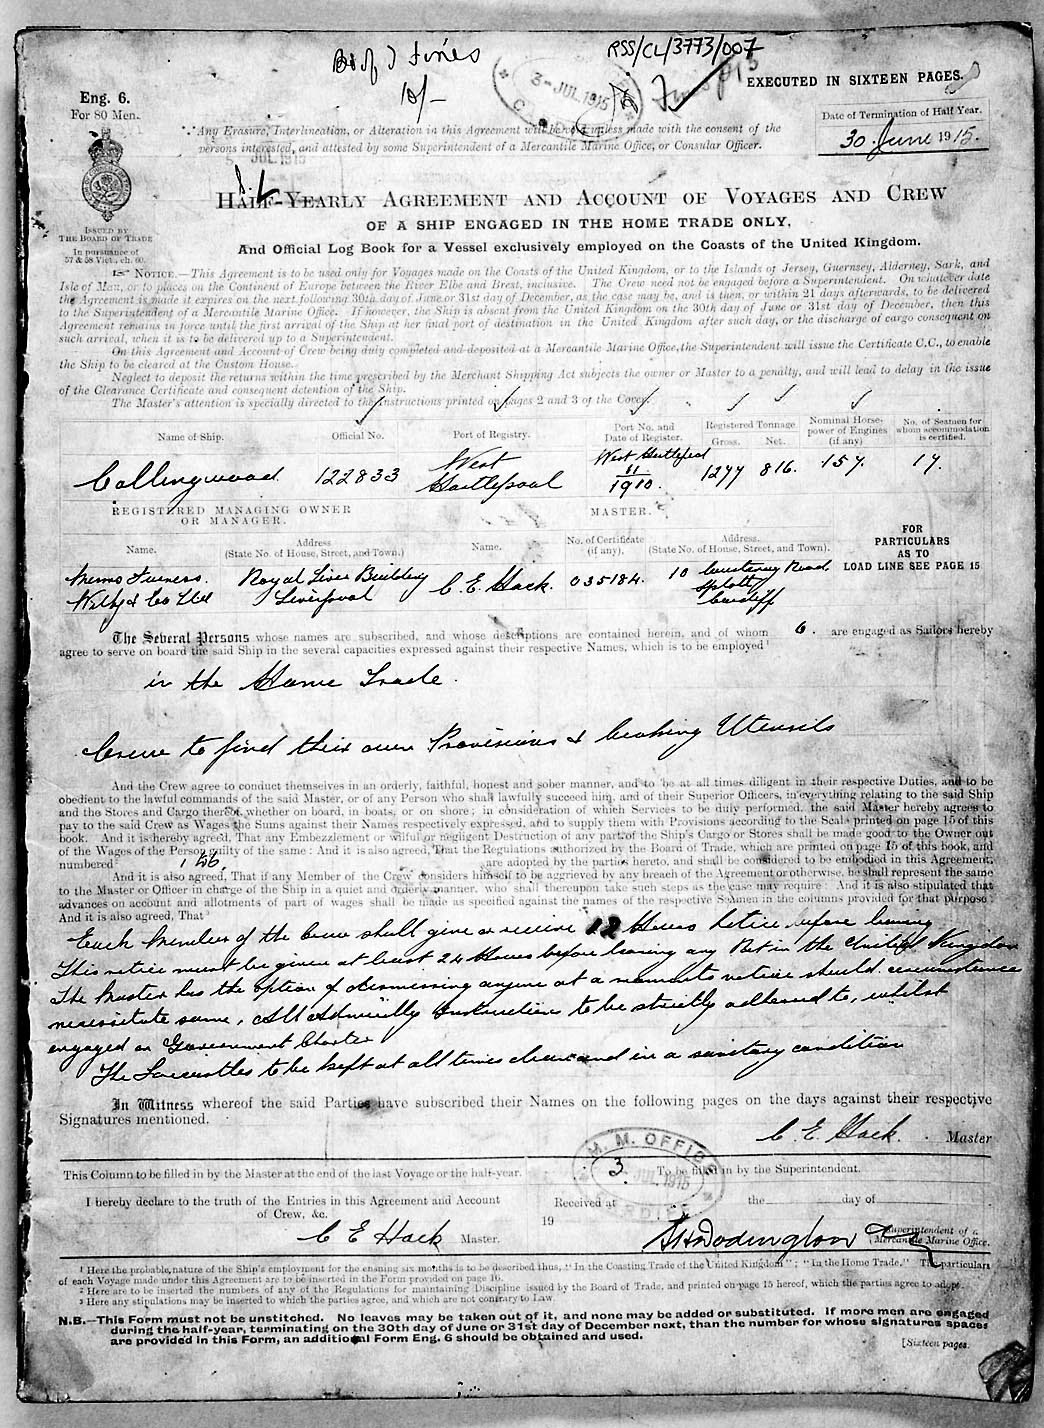 Bd of J Fines
10/-
RSS/CL/3773/007
3-JUL.1915
EXECUTED IN SIXTEEN PAGES.
Eng. 6.
For 80 Men.
Any Erasure, Interlineation, or Alteration in this Agreement will be void unless made with the consent of the
persons interested, and attested by some Superintendent of a Mercantile Marine Office, or Consular Officer.
JUL 1915
Date of Termination of Half Year.
30 June 1915.
HALF-YEARLY AGREEMENT AND ACCOUNT OF VOYAGES AND CREW
OF A SHIP ENGAGED IN THE HOME TRADE ONLY,
And Official Log Book for a Vessel exclusively employed on the Coasts of the United Kingdom.
ISSUED BY
THE BOARD OF TRADE
In pursuance of
57 & 58 Vict., ch. 60.
NOTICE.—This Agreement is to be used only for Voyages made on the Coasts of the United Kingdom, or to the Islands of Jersey, Guernsey, Alderney, Sark, and
Isle of Man, or to places on the Continent of Europe between the River Elbe and Brest, inclusive. The Crew need not be engaged before a Superintendent. On whatever date
the Agreement is made it expires on the next following 30th day of June or 31st day of December, as the case may be, and is then, or within 21 days afterwards, to be delivered
to the Superintendent of a Mercantile Marine Office. If however, the Ship is absent from the United Kingdom on the 30th day of June or 31st day of December, then this
Agreement remains in force until the first arrival of the Ship at her final port of destination in the United Kingdom after such day, or the discharge of cargo consequent on
such arrival, when it is to be delivered up to a Superintendent.
On this Agreement and Account of Crew being duly completed and deposited at a Mercantile Marine Office, the Superintendent will issue the Certificate C.C., to enable
the Ship to be cleared at the Custom House.
Neglect to deposit the returns within the time prescribed by the Merchant Shipping Act subjects the owner or Master to a penalty, and will lead to delay in the issue
of the Clearance Certificate and consequent detention of the Ship.
The Master's attention is specially directed to the instructions printed on pages 2 and 3 of the Cover.
Name of Ship. Official No. Port of Registry. Port No. and Date of Register. Registered Tonnage. Gross. Net. Nominal Horse-power of Engines (if any) No. of Seamen for whom accommodation is certified.
Collingwood 122833 West Hartlepool West Hartlepool 11/1910. 1277 816. 157. 17.
REGISTERED MANAGING OWNER
OR MANAGER.
MASTER.
Name. Address (State No. of House, Street, and Town). Name. No. of Certificate (if any). Address. (State No. of House, Street, and Town).
FOR
PARTICULARS
AS TO
LOAD LINE SEE PAGE 15
Messrs Furness. Royal Liver Building C. E. Hack. 035184. 10 Road
Withy & Co Ltd Liverpool Splott
Cardiff
The Several Persons whose names are subscribed, and whose descriptions are contained herein, and of whom 6. are engaged as Sailors hereby
agree to serve on board the said Ship in the several capacities expressed against their respective Names, which is to be employed¹
in the Home Trade.
Crew to find their own Provisions & Cooking Utensils
And the Crew agree to conduct themselves in an orderly, faithful, honest and sober manner, and to be at all times diligent in their respective Duties, and to be
obedient to the lawful commands of the said Master, or of any Person who shall lawfully succeed him, and of their Superior Officers, in everything relating to the said Ship
and the Stores and Cargo thereof, whether on board, in boats, or on shore; in consideration of which Services to be duly performed, the said Master hereby agrees to
pay to the said Crew as Wages the Sums against their Names respectively expressed, and to supply them with Provisions according to the Scale printed on page 15 of this
book. And it is hereby agreed, That any Embezzlement or wilful or negligent Destruction of any part of the Ship's Cargo or Stores shall be made good to the Owner out
of the Wages of the Person guilty of the same: And it is also agreed, That the Regulations authorized by the Board of Trade, which are printed on page 15 of this book, and
numbered² 1 to 6. are adopted by the parties hereto, and shall be considered to be embodied in this Agreement,
And it is also agreed, That if any Member of the Crew considers himself to be aggrieved by any breach of the Agreement or otherwise, he shall represent the same
to the Master or Officer in charge of the Ship in a quiet and orderly manner, who shall thereupon take such steps as the case may require: And it is also stipulated that
advances on account and allotments of part of wages shall be made as specified against the names of the respective Seamen in the columns provided for that purpose:
And it is also agreed, That³
Each member of the Crew shall give or receive 12 Hours notice before leaving
This notice must be given at least 24 Hours before leaving any Port in the United Kingdom
The Master has the option of dismissing anyone at a moments notice should circumstance
necessitate same, All Admiralty Instructions to be strictly adhered to, whilst
engaged on Government Charter
The Forecastles to be kept at all times clean and in a sanitary condition
In Witness whereof the said Parties have subscribed their Names on the following pages on the days against their respective
Signatures mentioned.
C. E. Hack. Master
This Column to be filled in by the Master at the end of the last Voyage or the half-year.
I hereby declare to the truth of the Entries in this Agreement and Account
of Crew, &c.
C E Hack Master.
M. M. OFFICE
3 JUL.1915
CARDIFF
To be filled in by the Superintendent.
Received at the day of
19
Superintendent of a
Mercantile Marine Office.
¹ Here the probable nature of the Ship's employment for the ensuing six months is to be described thus, "In the Coasting Trade of the United Kingdom"; "In the Home Trade." The particulars
of each Voyage made under this Agreement are to be inserted in the Form provided on page 16.
² Here are to be inserted the numbers of any of the Regulations for maintaining Discipline issued by the Board of Trade, and printed on page 15 hereof, which the parties agree to adopt.
³ Here any stipulations may be inserted to which the parties agree, and which are not contrary to Law.
N.B.—This Form must not be unstitched. No leaves may be taken out of it, and none may be added or substituted. If more men are engaged
during the half-year, terminating on the 30th day of June or 31st day of December next, than the number for whose signatures spaces
are provided in this Form, an additional Form Eng. 6 should be obtained and used.
[Sixteen pages.